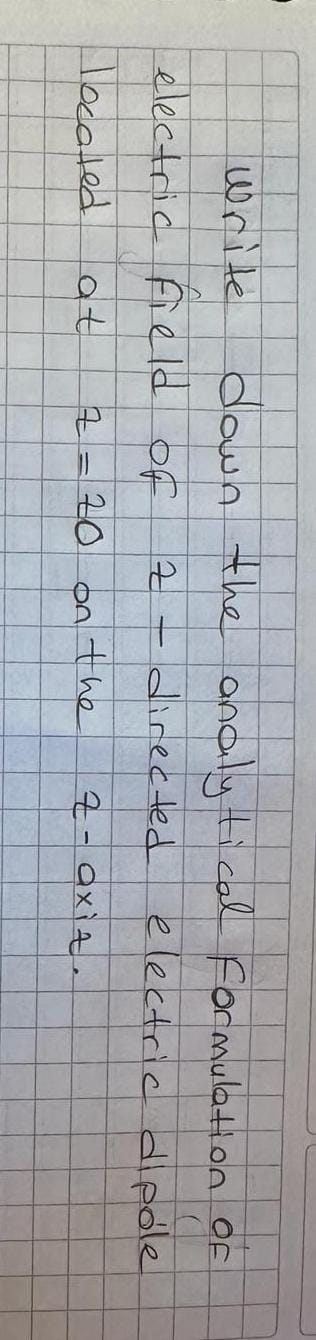 write down the analytical formulation of
electric field of z-directed electric dipole
located at z=z0 on the z-axiz.